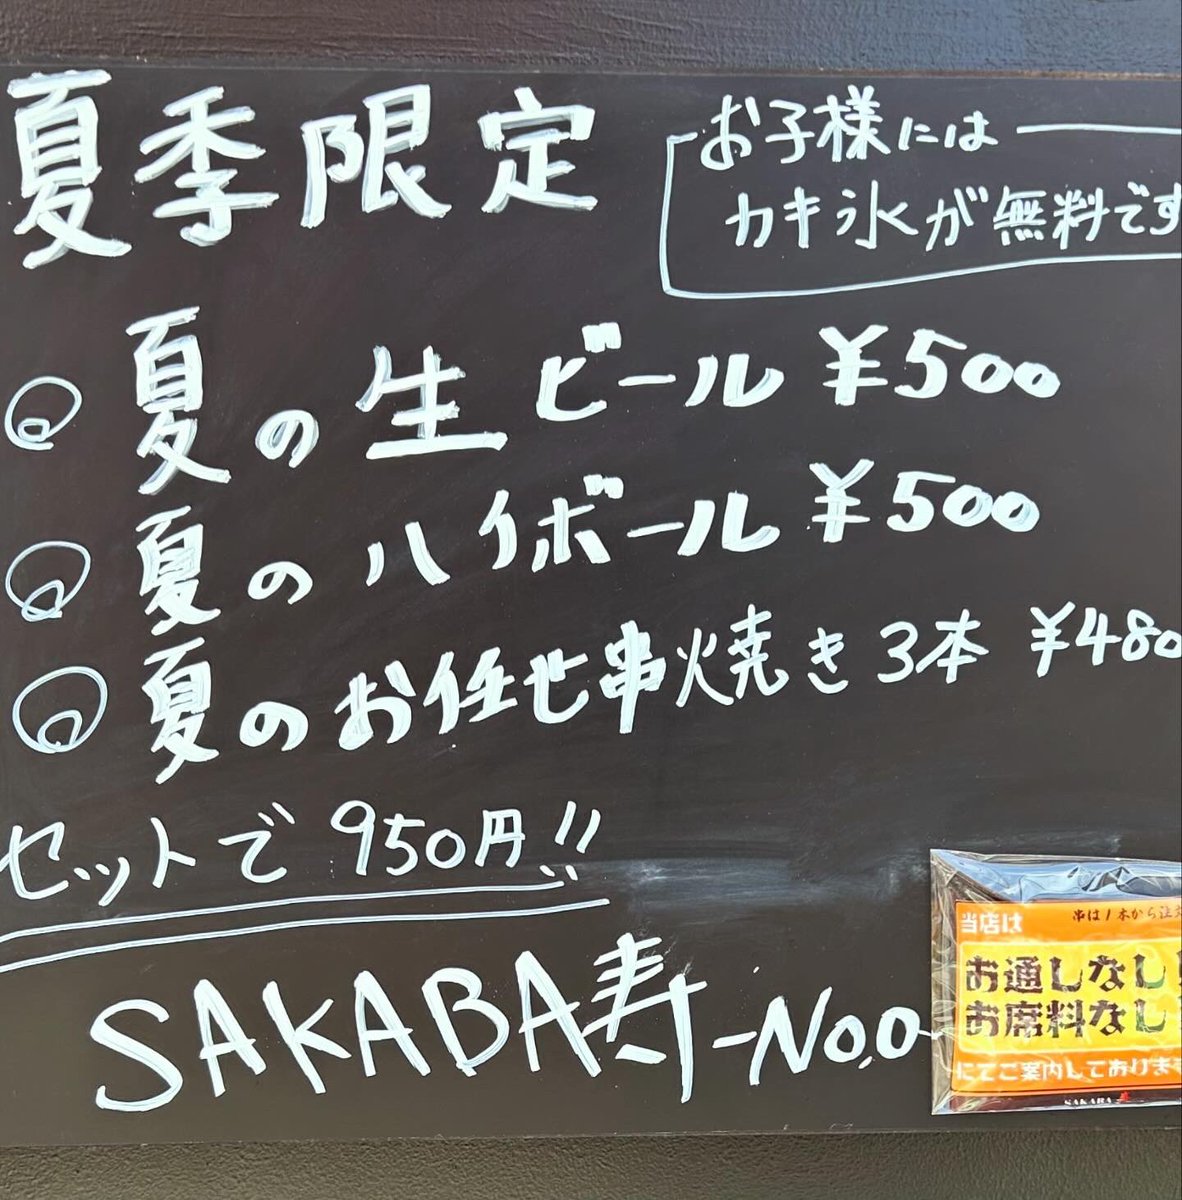 夏季限定
お子様には
カキ氷が無料です
夏の生ビール ¥500
夏のハイボール ¥500
夏のお任せ串焼き3本 ¥480
セットで950円!!
SAKABA寿-No,0-
当店は
串は1本から注文
お通しなし!
お席料なし
にてご案内しております
SAKABA 寿